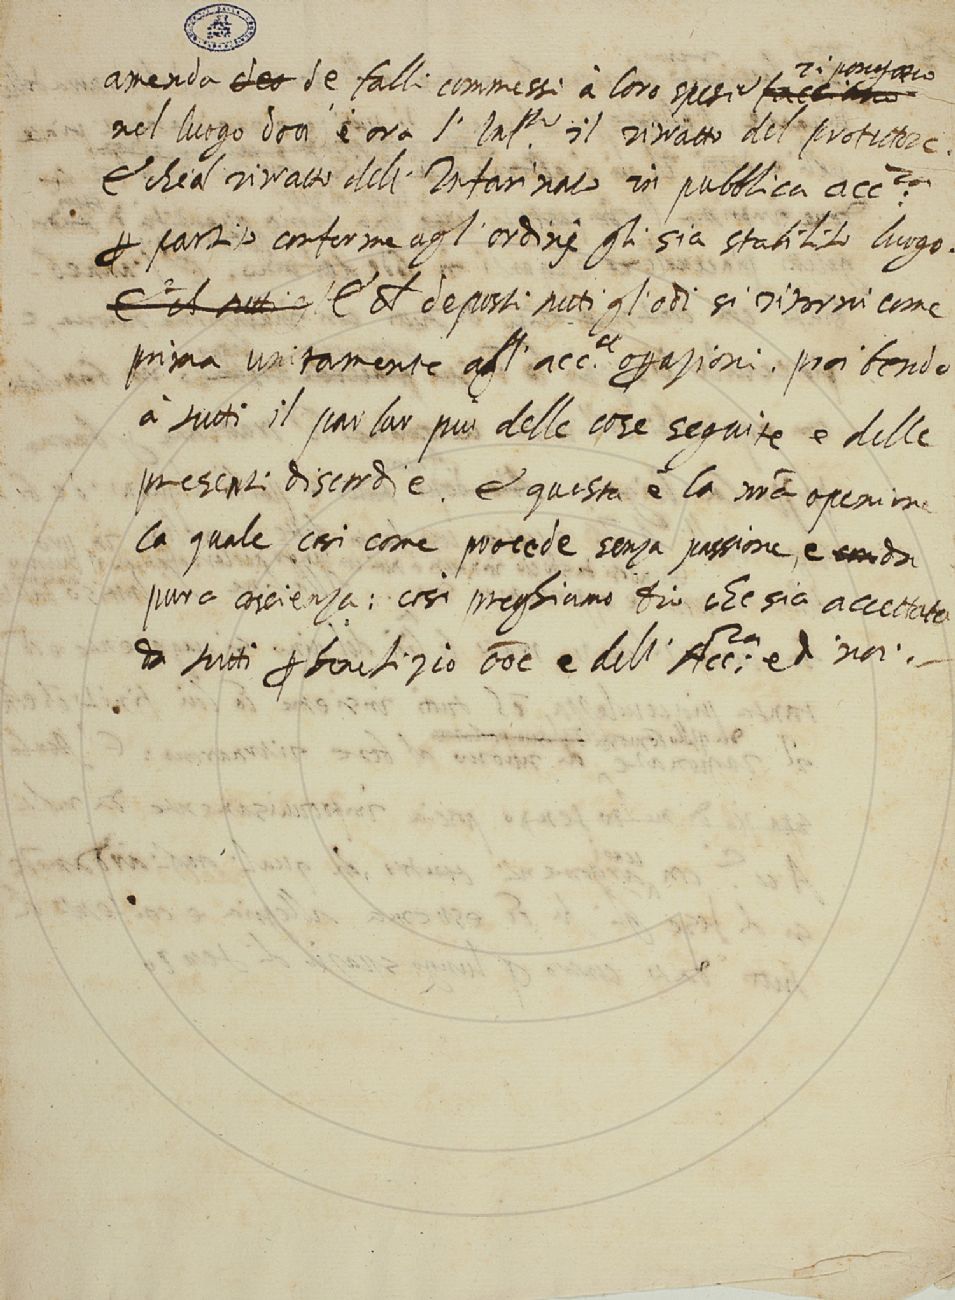 amenda de falli commessi à loro spese ripongano
nel luogo dov' è ora l' il ritratto del protettore.
E che al ritratto dell' Infarinato in pubblica acc.
partito conforme agl' ordini gli sia stabilito luogo.
E deposti tutti gl'odi si ritorni come
prima unitamente agl' acc. proibendo
à tutti il parlar più delle cose seguite e delle
presenti discordie. E questa è la nrã openione
la quale cosi come procede senza passione, e da
pura coscienza: cosi preghiamo che sia accettata
da tutti benefizio e dell' Acc. ed noi.